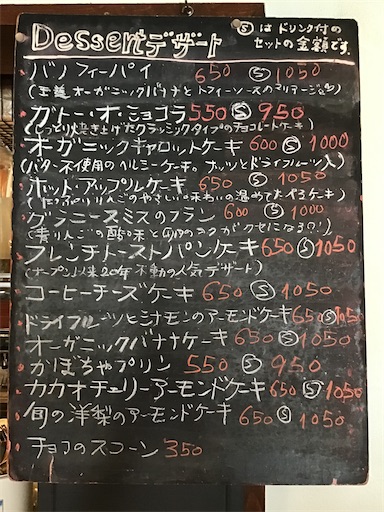 Dessert デザート
Ⓢはドリンク付の
セットの金額です。
バノフィーパイ 650 Ⓢ 1050
(王道オーガニックバナナとトフィーソースのマリアージュ)
ガトー・オ・ショコラ 550 Ⓢ 950
(しっとり焼き上げたクラッシックタイプのチョコレートケーキ)
オーガニックキャロットケーキ 600 Ⓢ 1000
(バター不使用のヘルシーケーキ。ナッツとドライフルーツ入)
ホット・アップルケーキ 650 Ⓢ 1050
(たっぷりりんごのやさしい味わいの温めて食べるケーキ)
グラニースミスのフラン 600 Ⓢ 1000
(青りんごの酸味と のコクがクセになる!?)
フレンチトーストパンケーキ 650 Ⓢ 1050
(オープン以来20年不動の人気デザート)
コーヒーチーズケーキ 650 Ⓢ 1050
ドライフルーツとシナモンのアーモンドケーキ 650 Ⓢ 1050
オーガニックバナナケーキ 650 Ⓢ 1050
かぼちゃプリン 550 Ⓢ 950
カカオチェリーアーモンドケーキ 650 Ⓢ 1050
旬の洋梨のアーモンドケーキ 650 Ⓢ 1050
チョコのスコーン 350